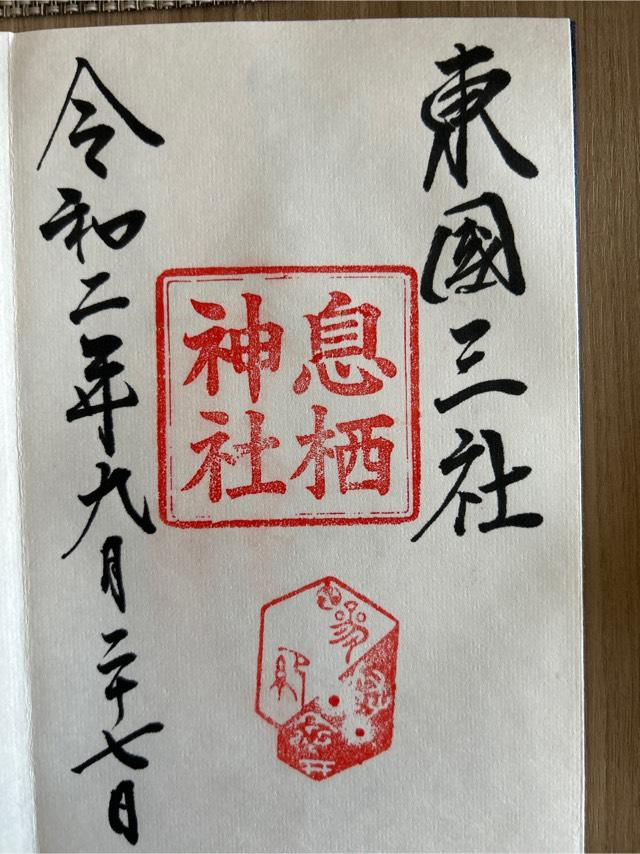 東國三社
息栖
神社
令和二年九月二十七日